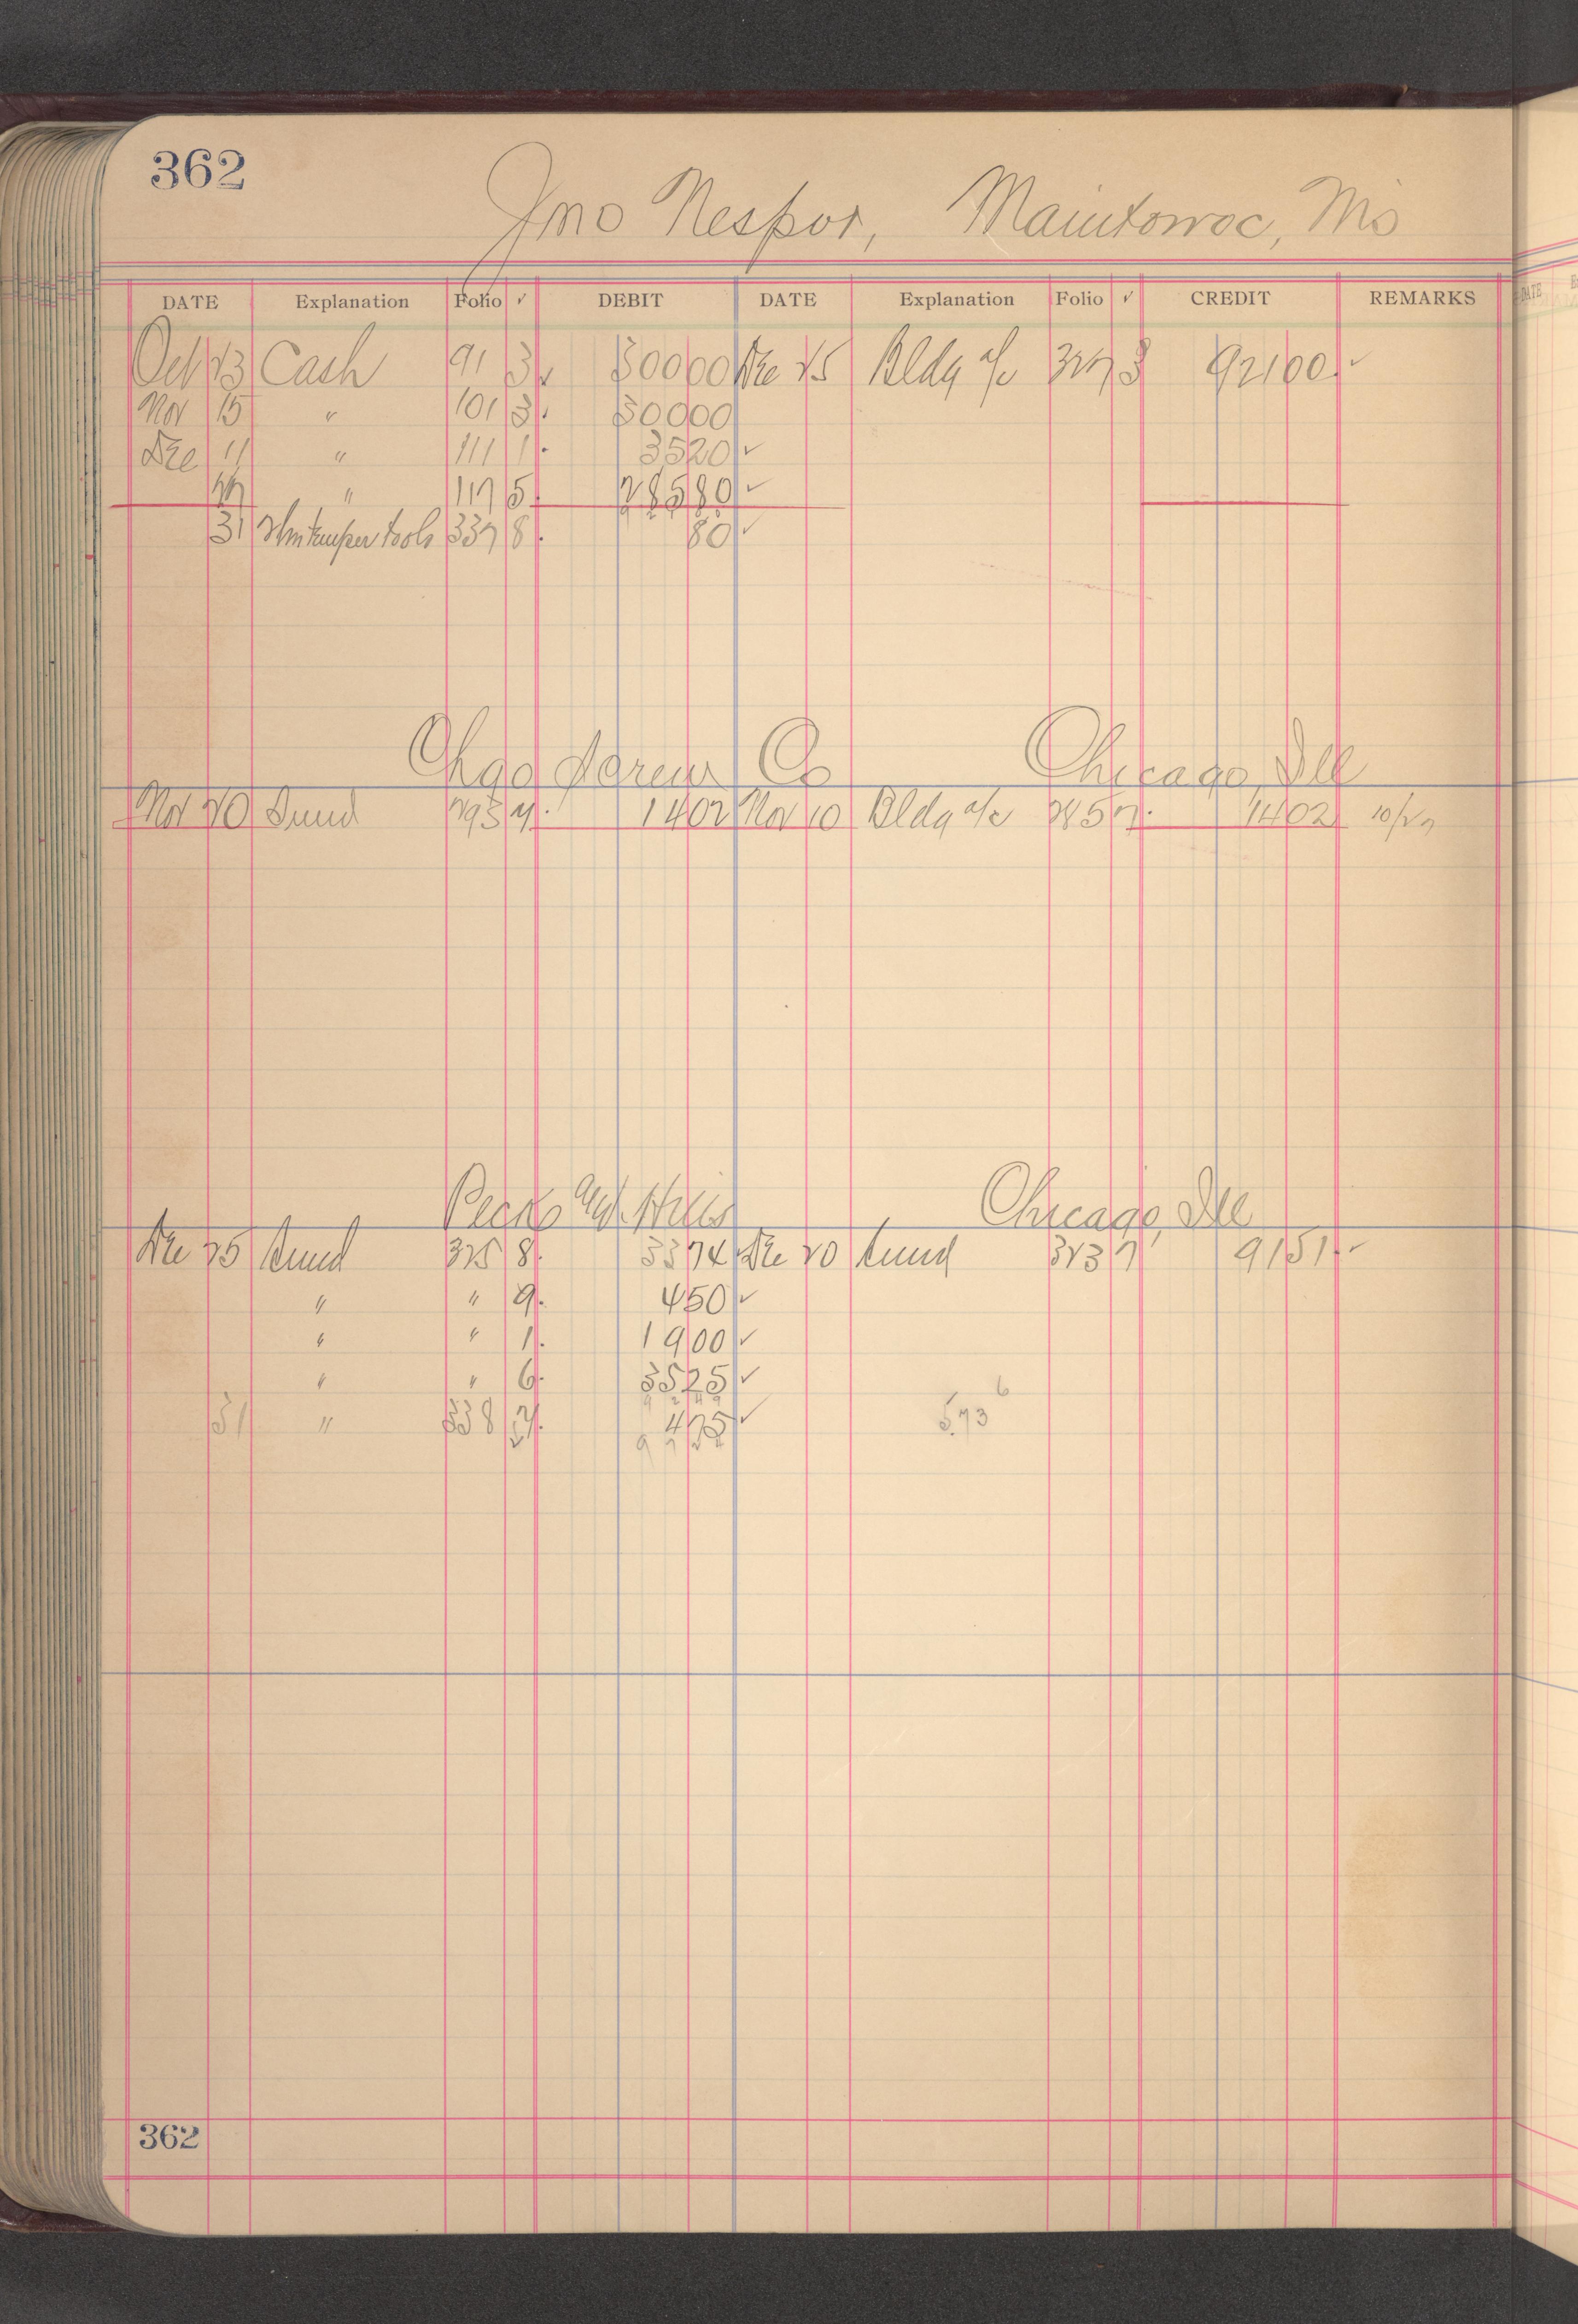 362
Jno Nespor, Manitowoc, Wis
DATE Explanation Folio ✓ DEBIT DATE Explanation Folio ✓ CREDIT REMARKS
Oct 23 Cash 91 3 ✓ 30000 Dec 25 Bldg a/c 327 3 92100 ✓
Nov 15 " 101 3. 30000
Dec 11 " 111 1. 3520 ✓
27 " 117 5. 28580 ✓
31 tools 337 8. 80 ✓
Chgo Screw Co Chicago, Ill
Nov 20 Sund 293 4. 1402 Nov 10 Bldg a/c 285 7. 1402 10/27
Peck and Hills Chicago, Ill
Dec 25 Sund 325 8. 3374 Dec 20 Sund 323 7 9151. ✓
" " 9. 450 ✓
" " 1. 1900 ✓
" " 6. 3525 ✓
31 " 338 4. 475 ✓ 573 6
9 7 2 4
362